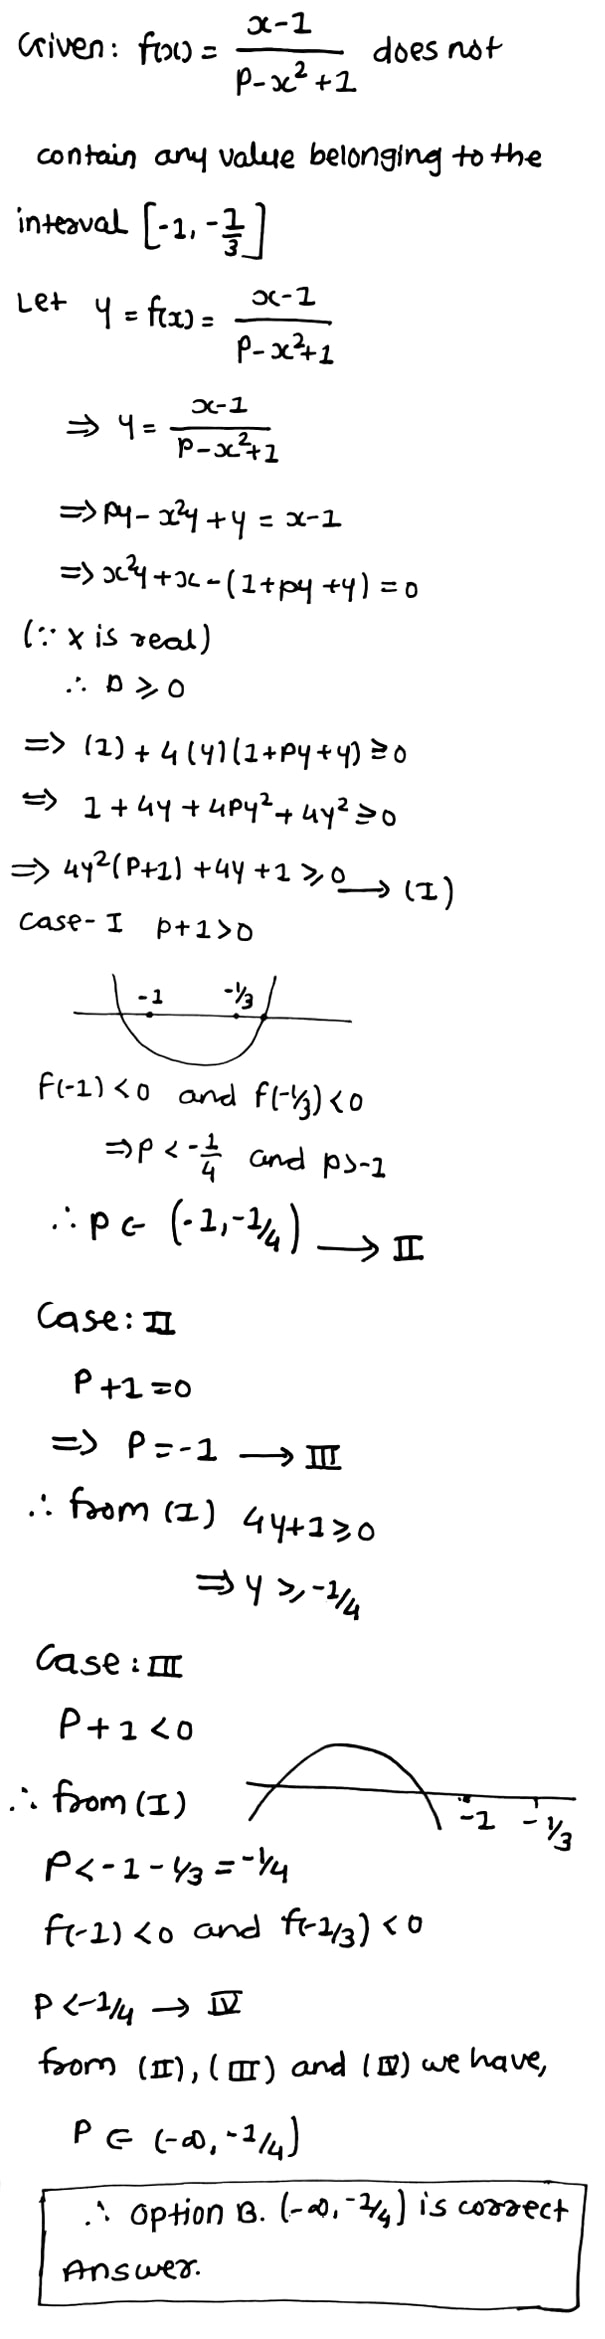 Given: f(x) = x-1 / P-x²+1 does not
contain any value belonging to the
interval [-1, -1/3]
Let y = f(x) = x-1 / P-x²+1
⇒ y = x-1 / P-x²+1
⇒ py - x²y + y = x-1
⇒ x²y + x - (1+py+y) = 0
(∵ x is real)
∴ D ≥ 0
⇒ (1) + 4(y)(1+py+y) ≥ 0
⇒ 1 + 4y + 4py² + 4y² ≥ 0
⇒ 4y²(P+1) + 4y + 1 ≥ 0 → (I)
Case-I p+1>0
-1 -1/3
f(-1)<0 and f(-1/3)<0
⇒ p < -1/4 and p>-1
∴ p ∈ (-1, -1/4) → II
Case: II
P+1=0
⇒ P=-1 → III
∴ from (I) 4y+1≥0
⇒ y ≥ -1/4
Case: III
P+1<0
∴ from (I)
-1 -1/3
P<-1-1/3 = -1/4
f(-1)<0 and f(-1/3)<0
P<-1/4 → IV
from (II), (III) and (IV) we have,
P ∈ (-∞, -1/4)
∴ Option B. (-∞, -1/4) is correct
Answer.